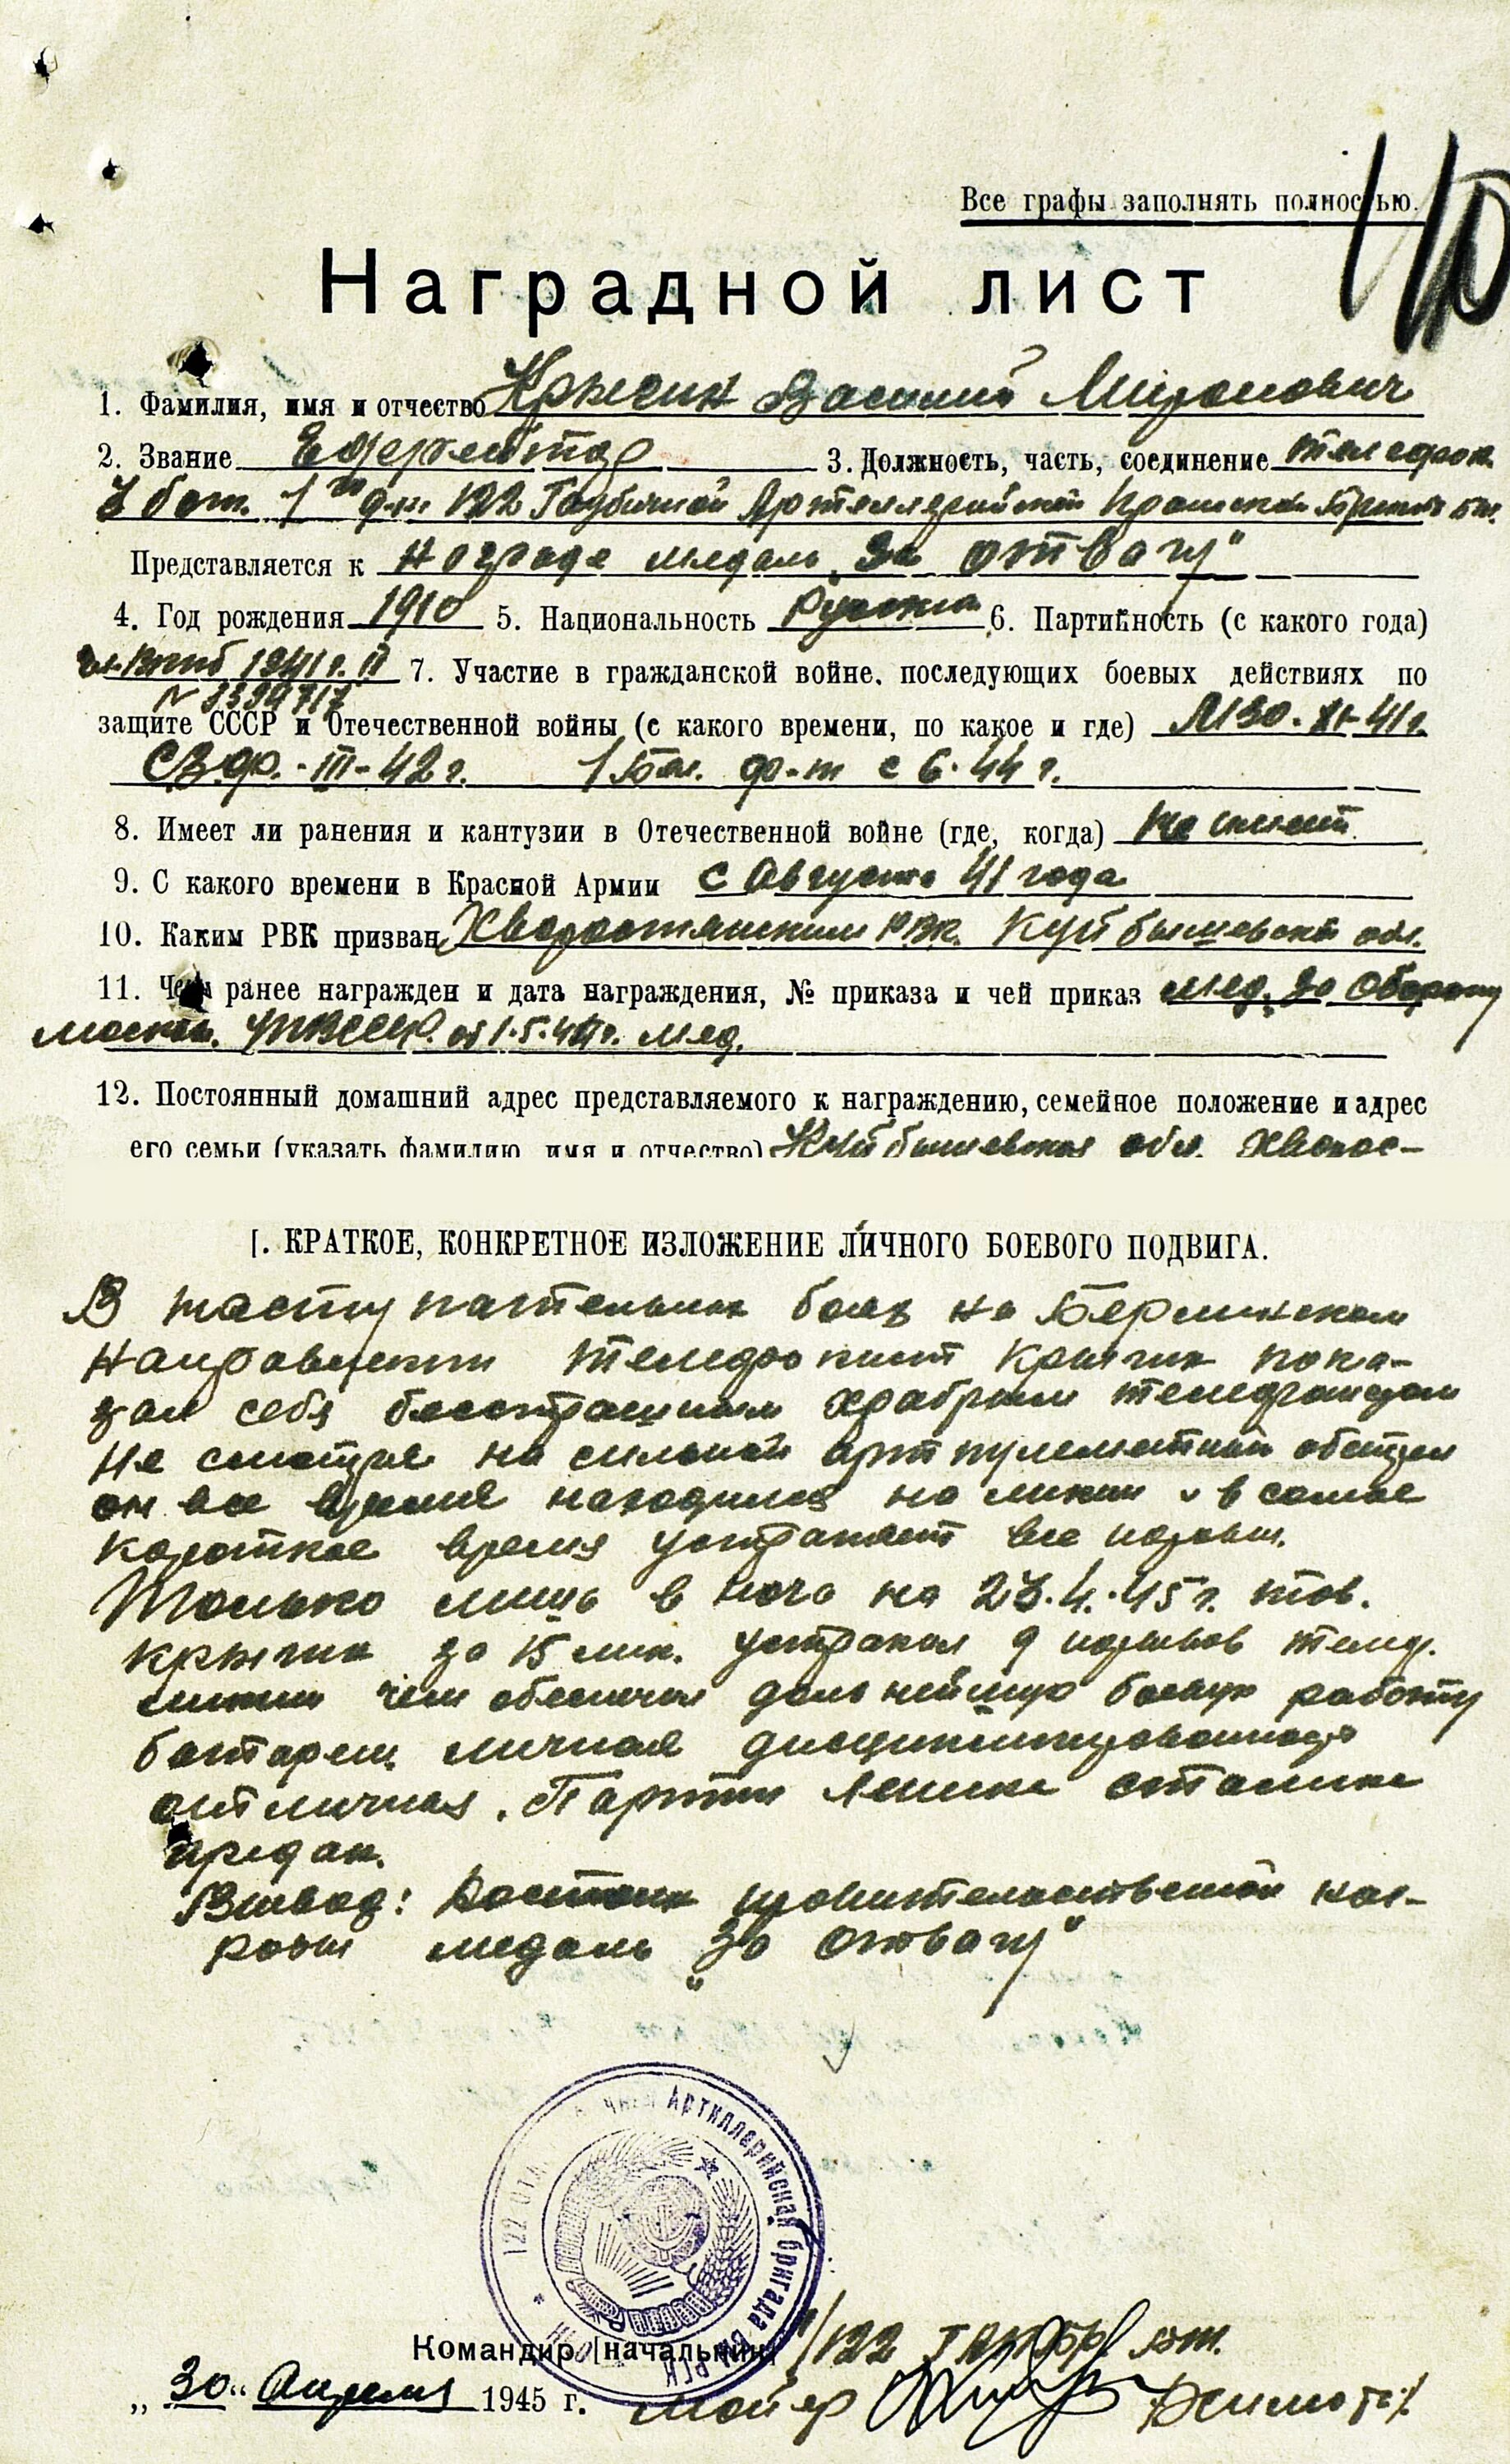 Все графы заполнять полностью.
Наградной лист
1. Фамилия, имя и отчество Крыгин Василий Миронович
2. Звание Ефрейтор 3. Должность, часть, соединение телефон.
бат. 1го д-на 122 Гаубичной Артиллерийской
Представляется к награде медаль „За отвагу"
4. Год рождения 1910 5. Национальность Русский 6. Партийность (с какого года)
чл. ВКПб 1941 г. № 8399717 7. Участие в гражданской войне, последующих боевых действиях по
защите СССР и Отечественной войны (с какого времени, по какое и где) МЗО. XI-41г.
СЗФ. -III- 42 г. 1 Бел. ф-т с 6.44 г.
8. Имеет ли ранения и кантузии в Отечественной войне (где, когда) не имеет
9. С какого времени в Красной Армии с Августа 41 года
10. Каким РВК призван Хворостянским РВК. Куйбышевской обл.
11. Чем ранее награжден и дата награждения, № приказа и чей приказ мед. За оборону
Москвы. УПВССР. от 1.5.44г. мед.
12. Постоянный домашний адрес представляемого к награждению, семейное положение и адрес
его семьи (указать фамилию, имя и отчество) Куйбышевская обл. Хворос-
I. КРАТКОЕ, КОНКРЕТНОЕ ИЗЛОЖЕНИЕ ЛИЧНОГО БОЕВОГО ПОДВИГА.
В наступательных боях на Берлинском
направлении телефонист Крыгин пока-
зал себя бесстрашным храбрым телефонистом
Не смотря на сильный арт пулеметный обстрел
он все время находился на линии и в самое
короткое время устраняет все порывы.
Только лишь в ночь на 23.4.45 г. тов.
Крыгин за 15 мин. устранил 9 порывов телеф.
линии чем обеспечил дальнейшую боевую работу
батареи. личная дисциплинированность
отличная. Партии Ленина Сталина
предан.
Вывод: Достоин правительственной наг-
рады медаль „За отвагу"
122 Артиллерийская бригада РГК
Командир (начальник) 1/122 ГАКбр. БМ.
„30" Апреля 1945 г. майор